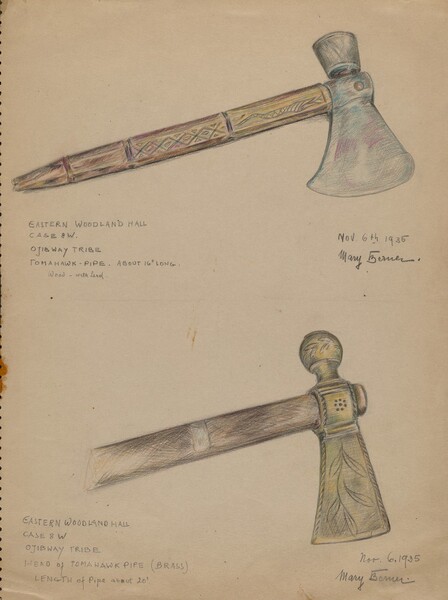 EASTERN WOODLAND HALL
CASE 8W.
OJIBWAY TRIBE
TOMAHAWK-PIPE. ABOUT 16" LONG.
Wood - with lead.
NOV. 6th 1935
Mary Berner.
EASTERN WOODLAND HALL
CASE 8W
OJIBWAY TRIBE
OF TOMAHAWK PIPE (BRASS)
LENGTH of Pipe about 20"
Nov. 6, 1935
Mary Berner.